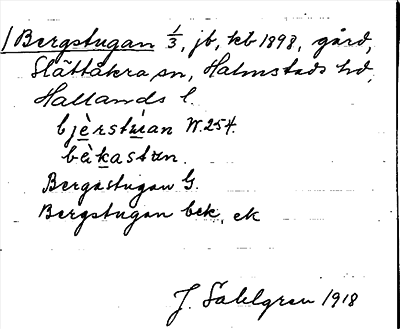 /Bergstugan 1/3, jb, kb 1898, gård,
Slättåkra sn, Halmstads hd,
Hallands l.
bjèrstùian W. 254.
bèkastun.
Bergastugan G.
Bergstugan bek, ek
J. Sahlgren 1918